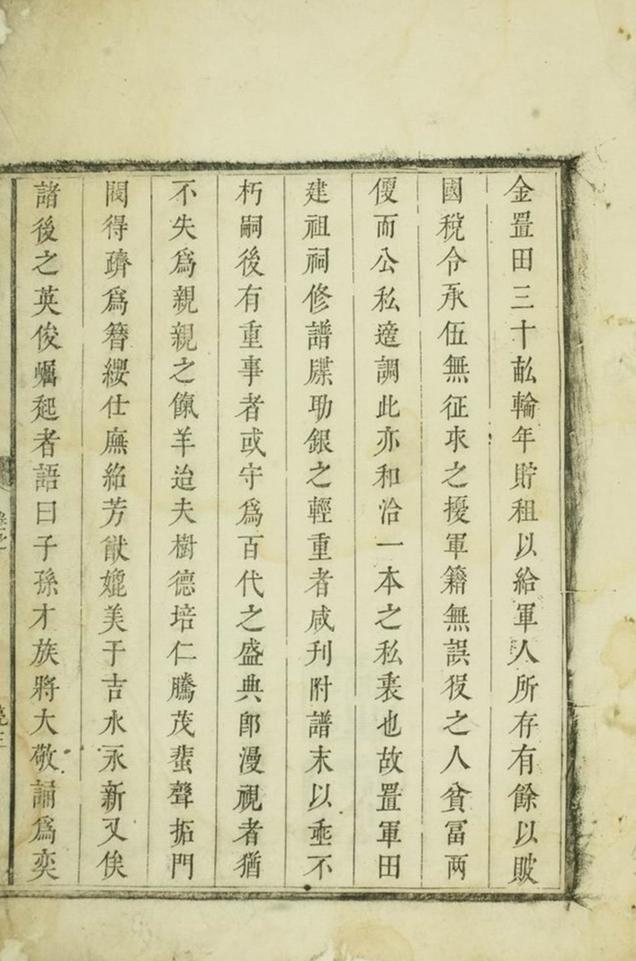 金置田三十畝輪年貯租以給軍人所存有餘以貱
國稅令承伍無征求之擾軍籍無誤役之人貧冨两
便而公私適調此亦和洽一本之私衷也故置軍田
建祖祠修譜牒助銀之輕重者咸刊附譜末以垂不
朽嗣後有重事者或守爲百代之盛典郎漫視者猶
不失爲親親之餼羊迨夫樹德培仁騰茂蜚聲拓門
閥得躋爲簪纓仕廡綌芳猷媲美于吉水永新又俟
諸後之英俊崛起者語曰子孫才族將大敬誦爲奕